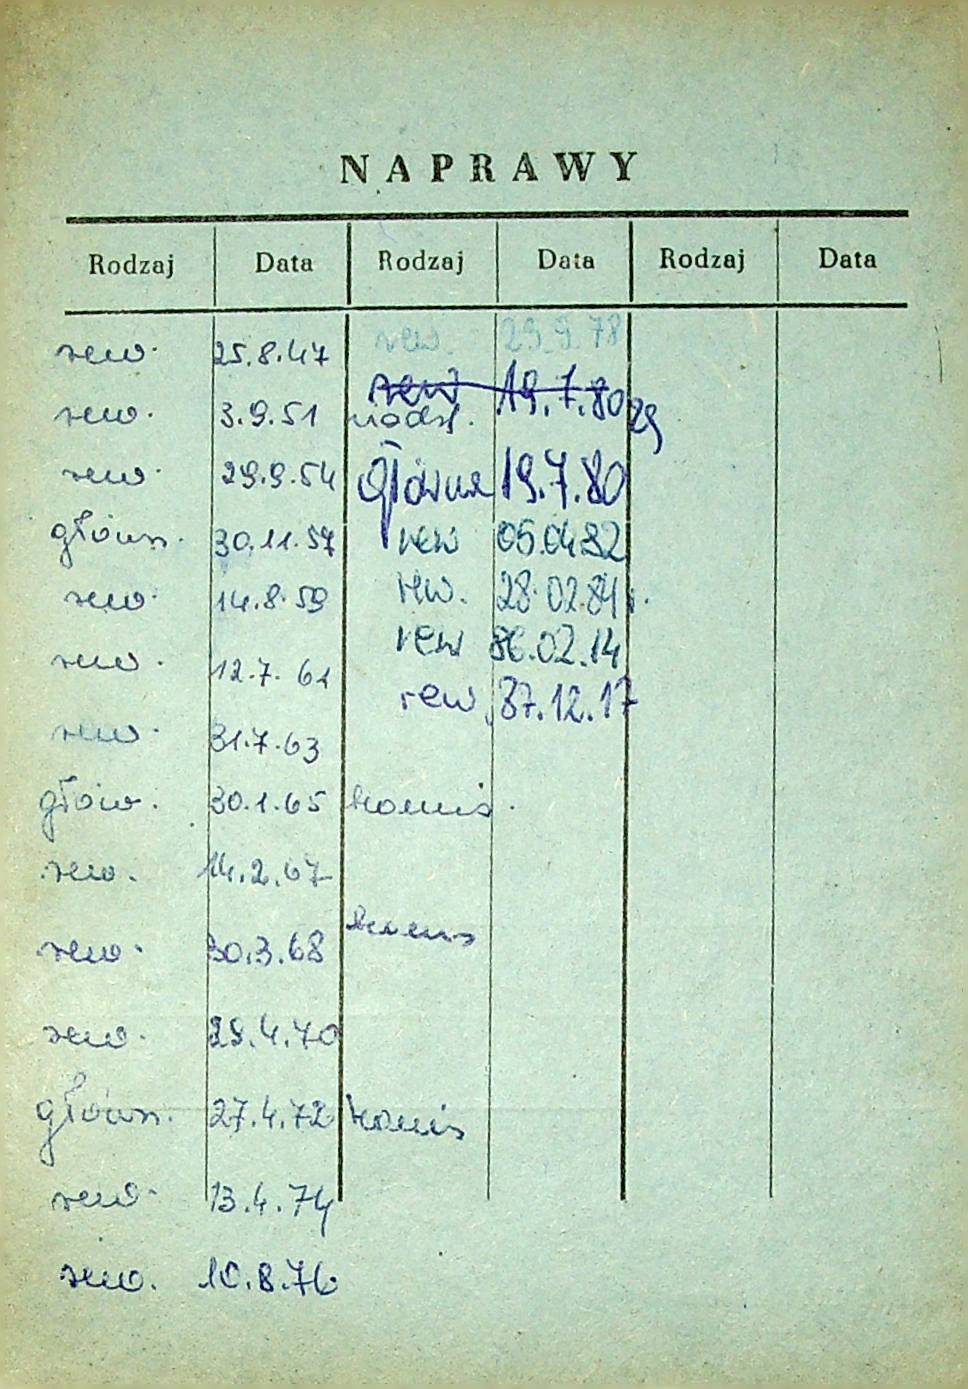 NAPRAWY
Rodzaj Data Rodzaj Data Rodzaj Data
rew. 25.8.47
rew. 3.9.51
rew 29.9.54
główn. 30.11.57
rew. 14.8.59
rew. 12.7.61
rew. 31.7.63
głów. 30.1.65 komis.
rew. 14.2.67
rew. 30.3.68 komis
rew. 29.4.70
główn. 27.4.72 komis
rew. 13.4.74
rew. 10.8.76
rew. 29.9.78
rew 19.7.80
nadzj.
główna 19.7.80
rew 05.04.82
rew. 28.02.84r.
rew 86.02.14
rew. 87.12.17